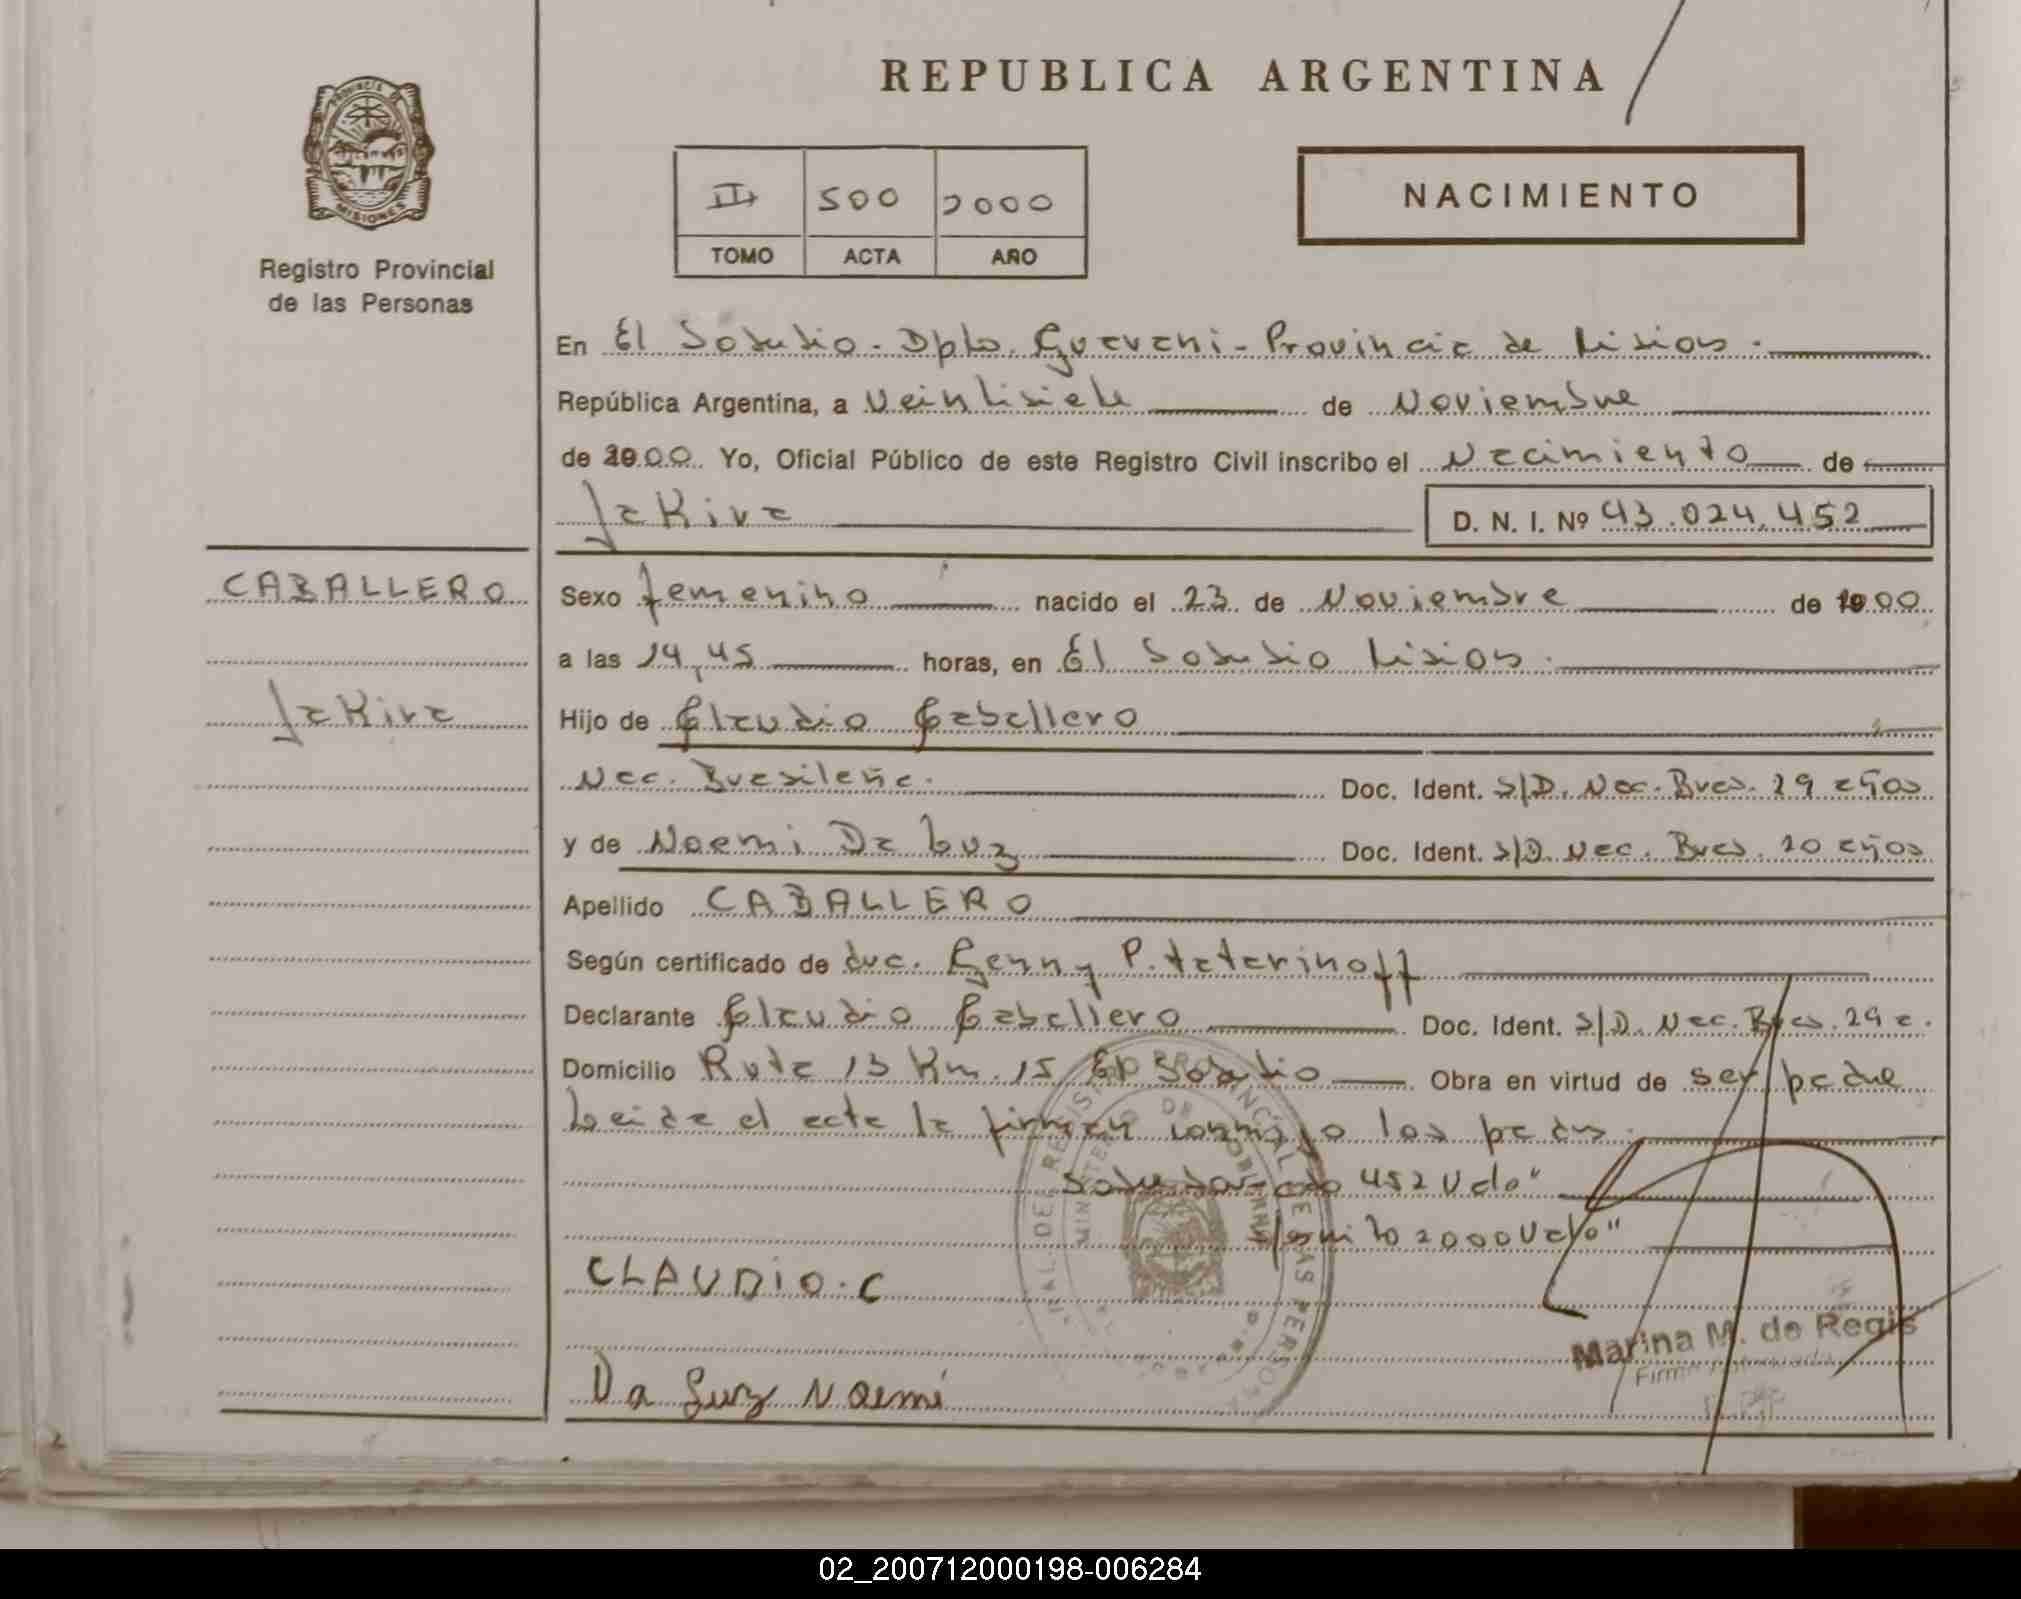 REPUBLICA ARGENTINA
PROVINCIA DE
MISIONES
Registro Provincial
de las Personas
III 500 2000
TOMO ACTA AÑO
NACIMIENTO
En El Soberbio - Dpto. Guarani - Provincia de Misiones.
República Argentina, a Veintisiete de Noviembre
de 2000 Yo, Oficial Público de este Registro Civil inscribo el Nacimiento de
Jakira D. N. I. Nº 43.024.452
CABALLERO
Jakira
Sexo femenino nacido el 23 de Noviembre de 1900
a las 14,45 horas, en El Soberbio Misiones.
Hijo de Claudio Caballero
Nac. Brasileña. Doc. Ident. S/D. Nac. Bras. 29 años
y de Noemi Da Luz Doc. Ident. S/D. Nac. Bras. 20 años
Apellido CABALLERO
Según certificado de dra. Genny P. Tatarinoff
Declarante Claudio Caballero Doc. Ident. S/D. Nac. Bras. 29 a.
Domicilio Ruta 13 Km. 15 El Soberbio Obra en virtud de ser padre
Leida el acta la firman conmigo los padres.
452 Vale"
2000 Vale"
CLAUDIO. C
Da Luz Noemi
Marina M. de Regis
Firma
02_200712000198-006284